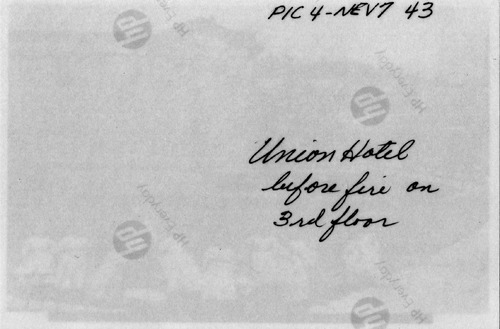 PIC 4-NEV7 43
Union Hotel
before fire on
3rd floor
hp
hp
hp
hp